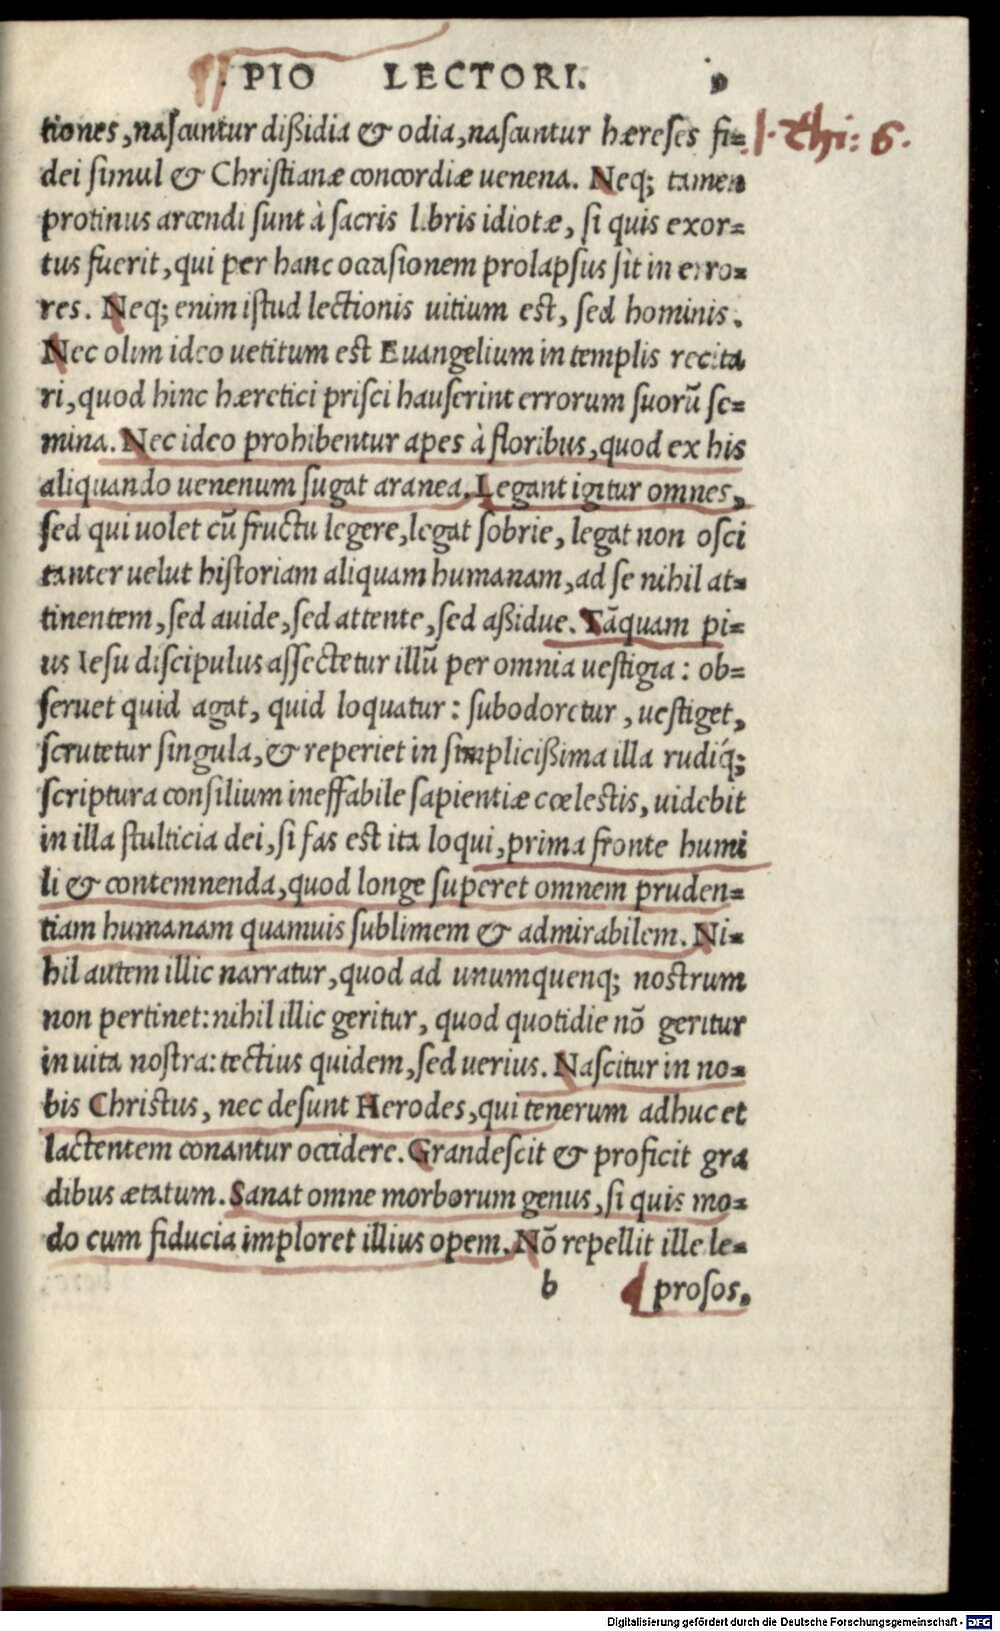 PIO LECTORI.
tiones, naſcuntur dißidia & odia, naſcuntur hæreſes fi= 1. Thi: 6.
dei ſimul & Chriſtianæ concordiæ uenena. Neq; tamen
protinus arcendi ſunt à ſacris libris idiotæ, ſi quis exor=
tus fuerit, qui per hanc occaſionem prolapſus ſit in erro=
res. Neq; enim iſtud lectionis uitium eſt, ſed hominis.
Nec olim ideo uetitum eſt Euangelium in templis recita
ri, quod hinc hæretici priſci hauſerint errorum ſuorũ ſe=
mina. Nec ideo prohibentur apes à floribus, quod ex his
aliquando uenenum ſugat aranea. Legant igitur omnes,
ſed qui uolet cũ fructu legere, legat ſobrie, legat non oſci
tanter uelut hiſtoriam aliquam humanam, ad ſe nihil at=
tinentem, ſed auide, ſed attente, ſed aßidue. Tãquam pi=
us Ieſu diſcipulus aſſectetur illũ per omnia ueſtigia: ob=
ſeruet quid agat, quid loquatur: ſubodoretur, ueſtiget,
ſcrutetur ſingula, & reperiet in ſimplicißima illa rudiq́;
ſcriptura conſilium ineffabile ſapientiæ cœleſtis, uidebit
in illa ſtulticia dei, ſi fas eſt ita loqui, prima fronte humi
li & contemnenda, quod longe ſuperet omnem pruden=
tiam humanam quamuis ſublimem & admirabilem. Ni=
hil autem illic narratur, quod ad unumquenq; noſtrum
non pertinet: nihil illic geritur, quod quotidie nõ geritur
in uita noſtra: tectius quidem, ſed uerius. Naſcitur in no=
bis Chriſtus, nec deſunt Herodes, qui tenerum adhuc et
lactentem conantur occidere. Grandeſcit & proficit gra
dibus ætatum. Sanat omne morborum genus, ſi quis mo=
do cum fiducia imploret illius opem. Nõ repellit ille le=
b proſos,
Digitalisierung gefördert durch die Deutsche Forschungsgemeinschaft - DFG